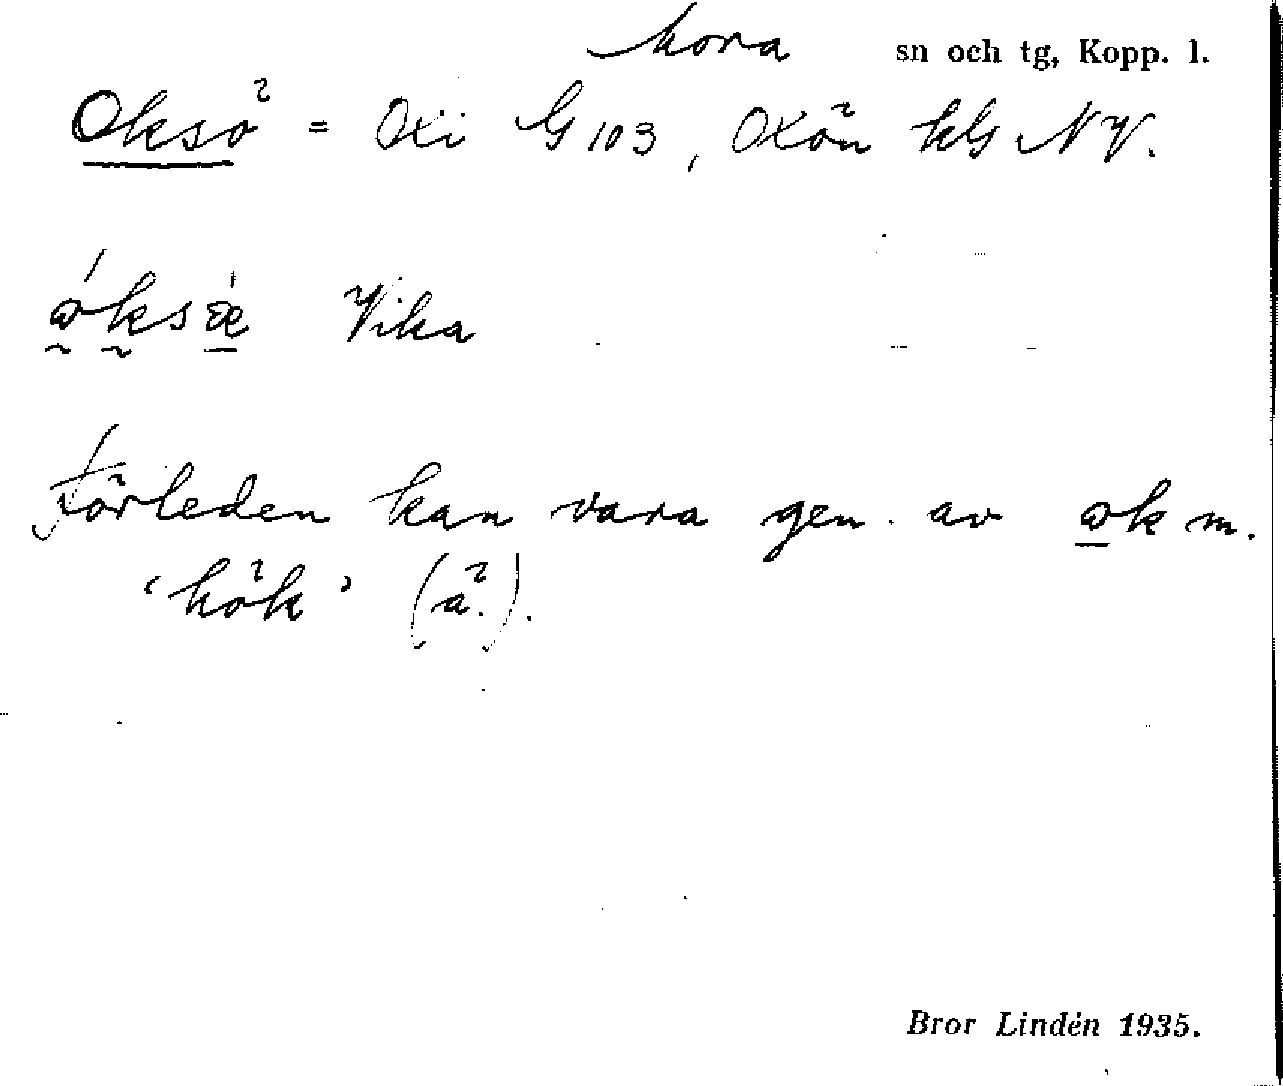 Mora sn och tg, Kopp. l.
Oksö = Oxi G 103, Oxön kG NV.
Vika
Förleden kan vara gen. av ɷk m.
'hök' (a?).
Bror Lindén 1935.